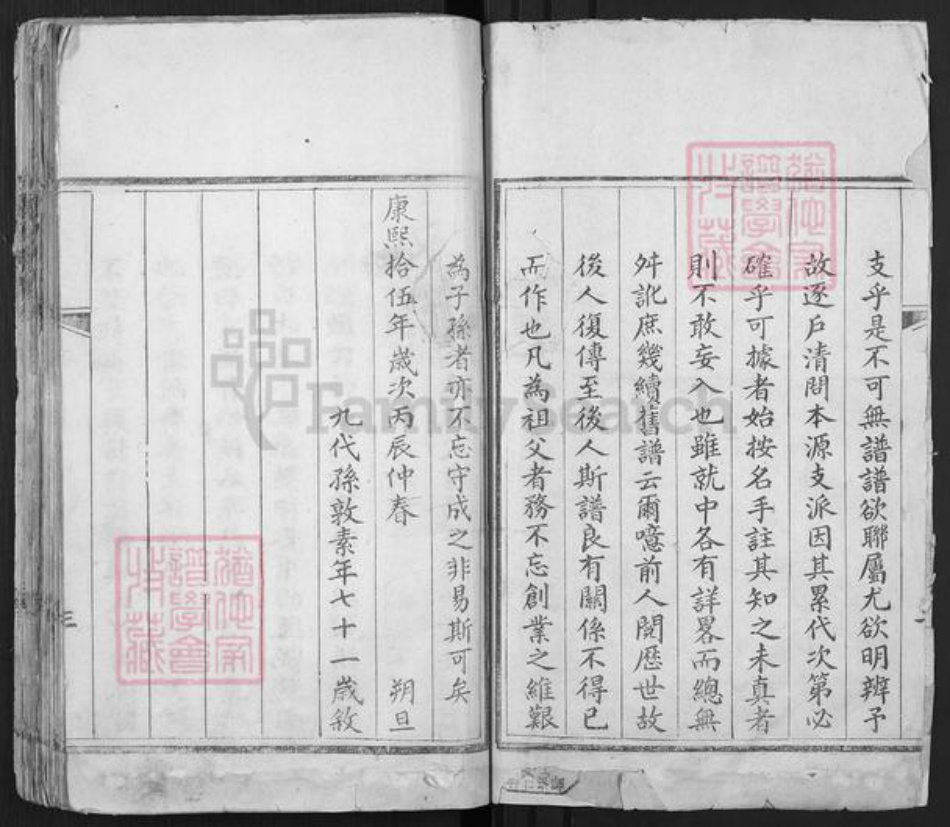 支乎是不可無譜譜欲聯屬尤欲明辨予
故逐戶清問本源支派因其累代次第必
確乎可據者始按名手註其知之未真者
則不敢妄入也雖就中各有詳畧而總無
舛訛庶幾續舊譜云爾噫前人閱歷世故
後人復傳至後人斯譜良有關係不得已
而作也凡為祖父者務不忘創業之維艱
為子孫者亦不忘守成之非易斯可矣
康熙拾伍年歲次丙辰仲春 朔旦
九代孫敦素年七十一歲敘
三
FamilySearch